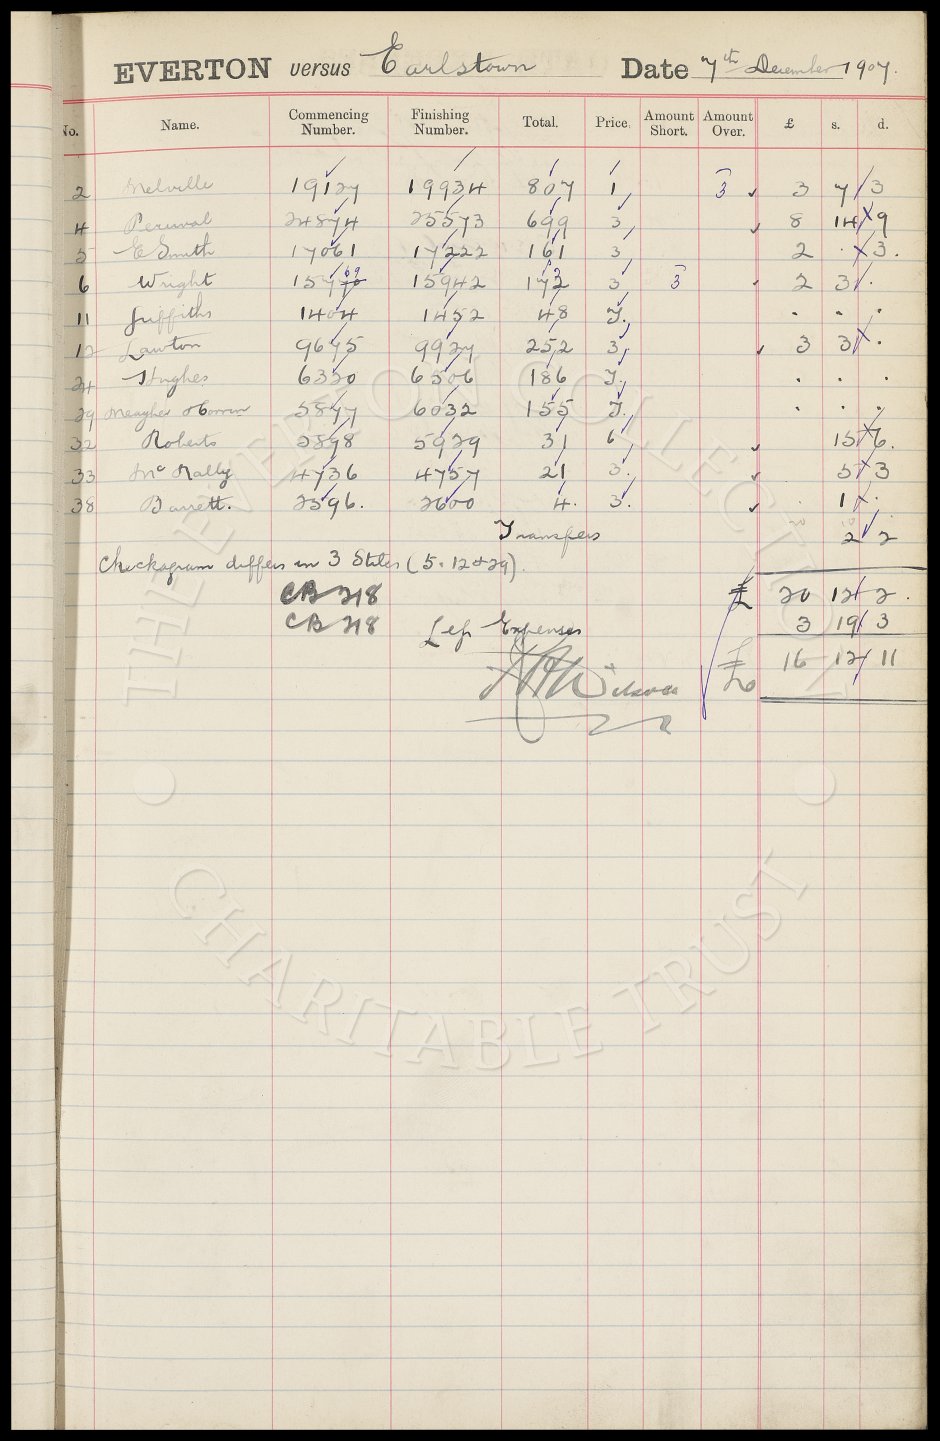 EVERTON versus Earlstown Date 7th December 1907.
No. Name. Commencing Number. Finishing Number. Total. Price. Amount Short. Amount Over. £ s. d.
2 Melville 19127 19934 807 1 3 3 7 3
4 Percival 24874 25573 699 3 8 14 9
5 E Smith 17061 17222 161 3 2 . 3.
6 Wright 15770 69 15942 172 3 3 3 2 3 .
11 Griffiths 1404 1452 48 T. . . .
12 Lawton 9675 9927 252 3 3 3 .
24 Hughes 6320 6506 186 T. . . .
29 Meagher 5877 6032 155 T. . . .
32 Roberts 5898 5929 31 6 15 6.
33 Mc Nally 4736 4757 21 3. 5 3
38 Barrett. 2596. 2600 4. 3. . 1 .
Transfers 2 2
Checkagram differs in 3 Stiles (5. 12 & 29).
CB 218 £ 20 12 2.
CB 218 Less Expenses 3 19 3
£ 16 12 11
Wilson
THE EVERTON COLLECTION
CHARITABLE TRUST